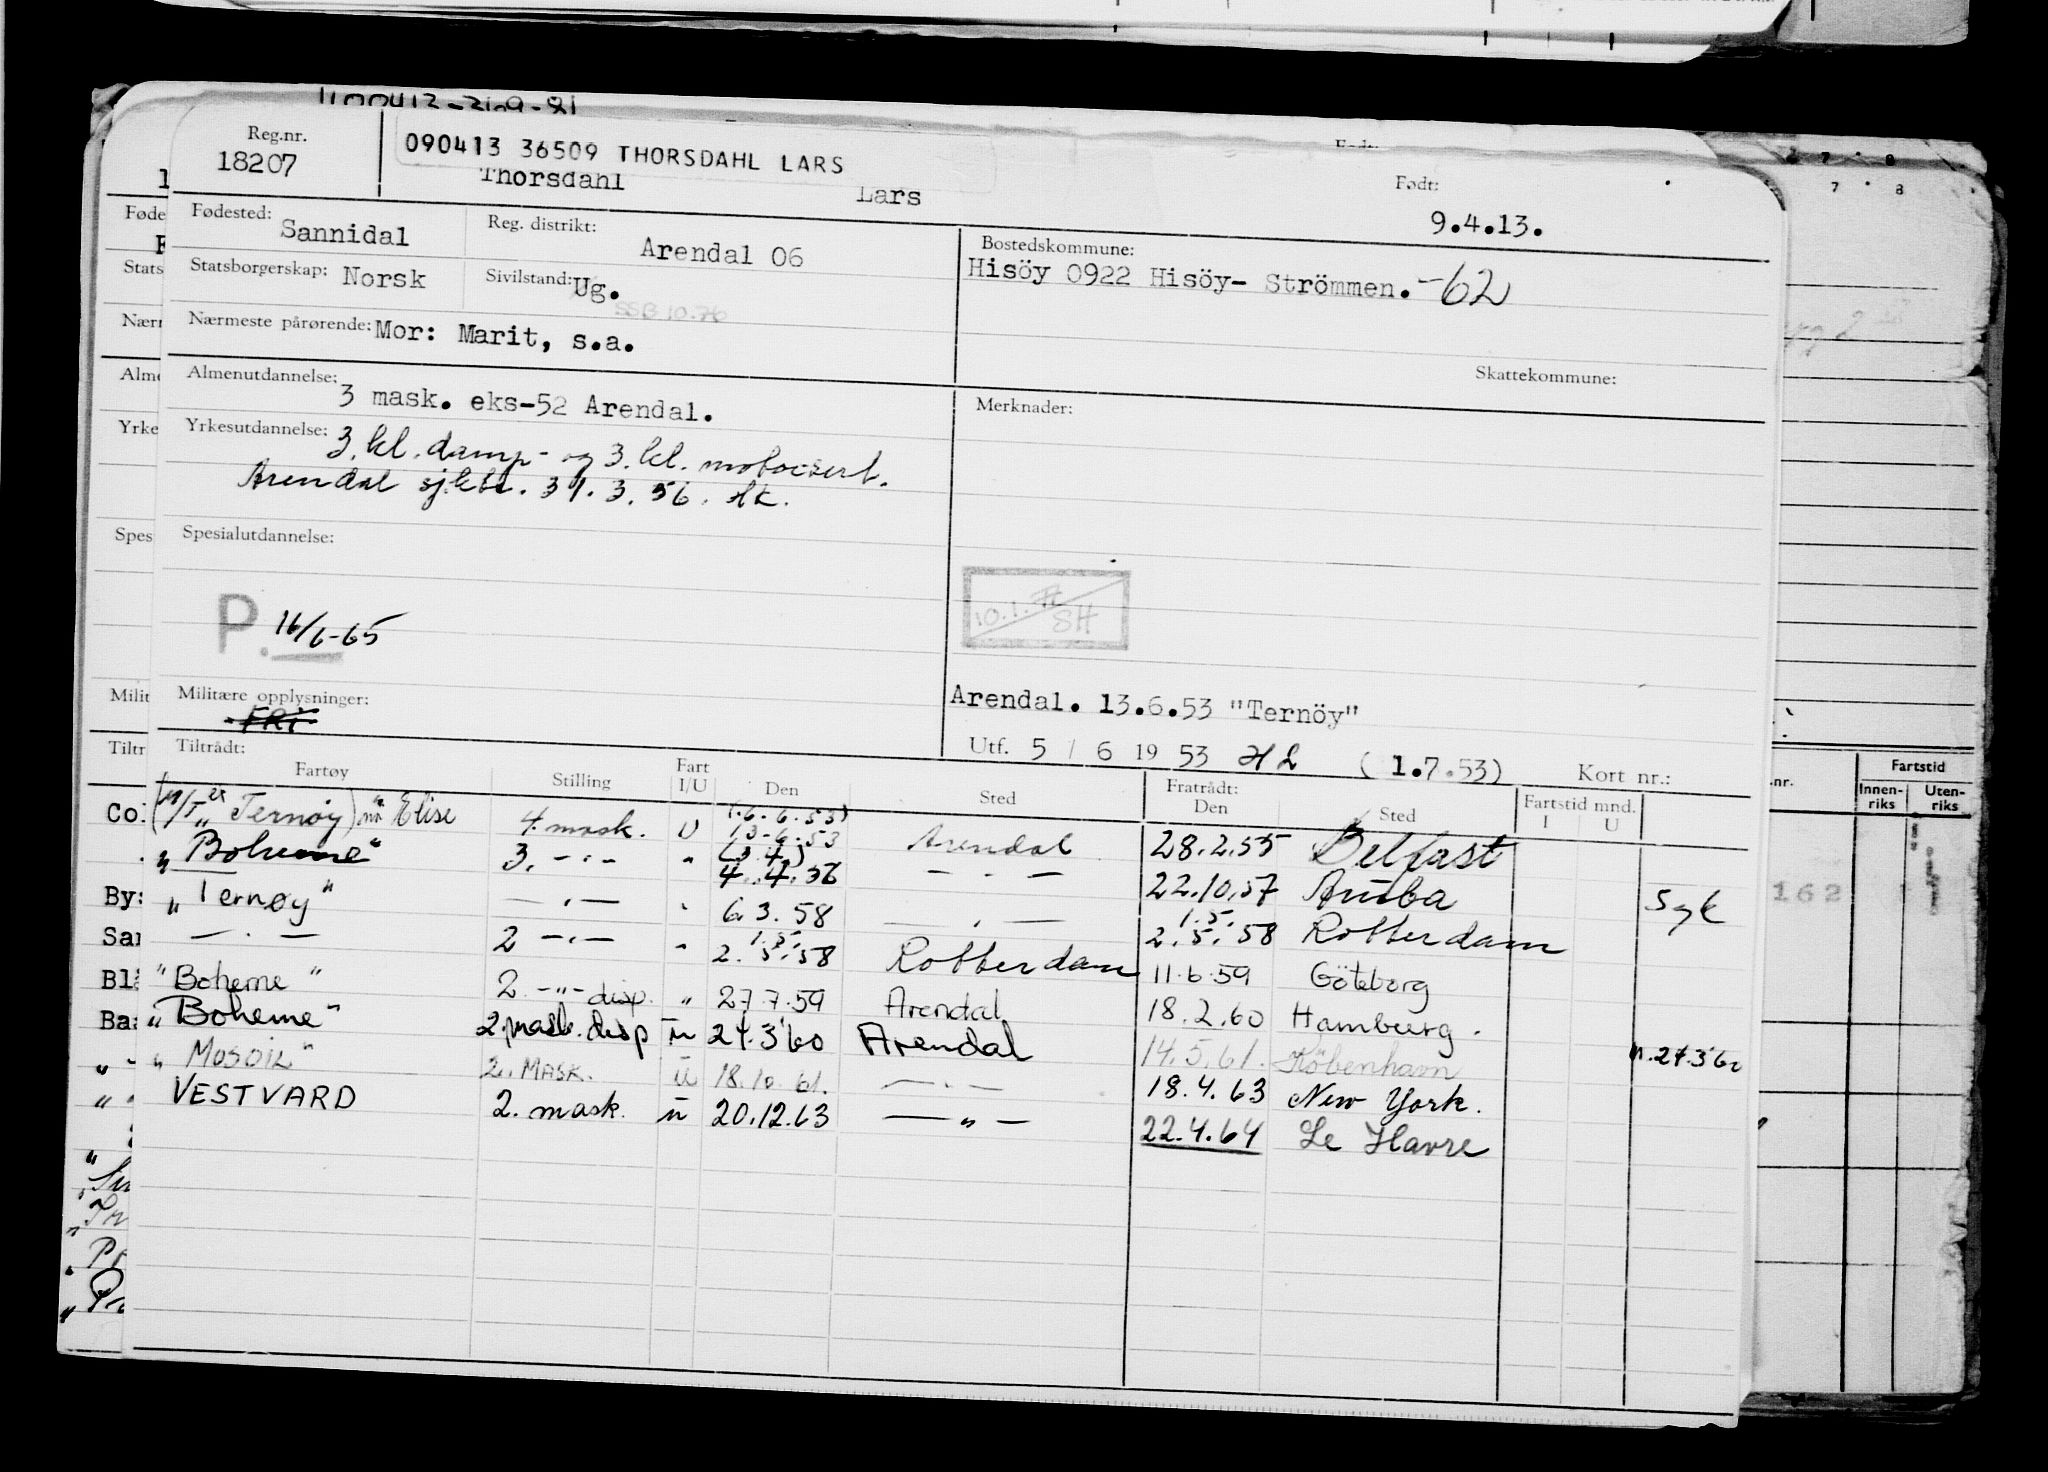 Reg.nr.
18207
090413 36509 THORSDAHL LARS
Thorsdahl Lars
Født:
9.4.13.
Fødested: Sannidal
Reg. distrikt: Arendal 06
Bostedskommune:
Hisöy 0922 Hisöy- Strömmen. -62
Statsborgerskap: Norsk
Sivilstand: Ug.
SSB 10.76
Nærmeste pårørende: Mor: Marit, s.a.
Skattekommune:
Almenutdannelse:
3 mask. eks-52 Arendal.
Merknader:
Yrkesutdannelse: 3. kl. damp- og 3. kl. motorsert.
Arendal sjktr. 31.3.56. Hk.
Spesialutdannelse:
P. 16/6-65
10.1. SH
Militære opplysninger:
FRI
Arendal. 13.6.53 "Ternöy"
Utf. 5 / 6 19 53 HL (1.7.53) Kort nr.:
Tiltrådt:
Fartøy Stilling Fart I/U Den Sted Fratrådt: Den Sted Fartstid mnd. I U
(M/T "Ternøy") Elise 4. mask. U (6.6.53) 13-6-53 Arendal 28.2.55 Belfast
"Boheme" 3. -"- " (3.4.) 4.4.56 - " - 22.10.57 Aruba Syk
"Ternøy" - " - " 6.3.58 - " - 1.5. 2.5.58 Rotterdam
- " - 2 -"- " 1.5. 2.5.58 Rotterdam 11.6.59 Göteborg
"Boheme" 2 -"- disp. " 27.7.59 Arendal 18.2.60 Hamburg.
"Boheme" 2. mask. disp U 24.3.60 Arendal 14.5.61. Köbenhavn n.24.3.60
"MOSOIL" 2. MASK. U 18.10.61. - " - 18.4.63 New York.
VESTVARD 2. mask. U 20.12.63 - " - 22.4.64 Le Havre
Fartstid
Innen-riks Uten-riks
162